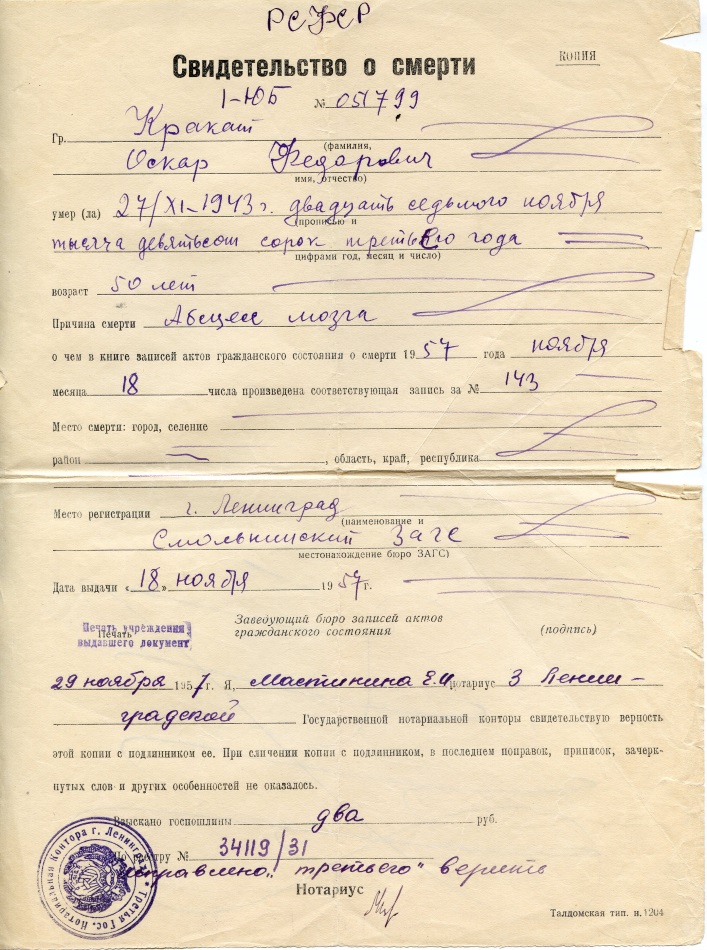 РСФСР
КОПИЯ
Свидетельство о смерти
I-ЮБ № 051799
Гр. Кракат
(фамилия,
Оскар Федорович
имя, отчество)
умер (ла) 27/XI-1943 г. двадцать седьмого ноября
(прописью и
тысяча девятьсот сорок третьего года
цифрами год, месяц и число)
возраст 50 лет
Причина смерти Абсцесс мозга
о чем в книге записей актов гражданского состояния о смерти 1957 года ноября
месяца 18 числа произведена соответствующая запись за № 143
Место смерти: город, селение
район , область, край, республика
Место регистрации г. Ленинград
(наименование и
Смольнинский Загс
местонахождение бюро ЗАГС)
Дата выдачи «18» ноября 1957 г.
Заведующий бюро записей актов
гражданского состояния (подпись)
Печать
Печать учреждения
выдавшего документ
29 ноября 1957 г. Я, Мастинина Е.И. нотариус 3 Ленин-
градской Государственной нотариальной конторы свидетельствую верность
этой копии с подлинником ее. При сличении копии с подлинником, в последнем поправок, приписок, зачерк-
нутых слов и других особенностей не оказалось.
Взыскано госпошлины два руб.
По реестру № 34119/31
исправлено „третьего" верить
Нотариус
Третья Гос. Нотариальная Контора г. Ленинград
Талдомская тип. н.1204